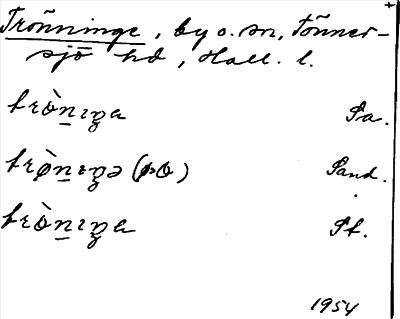 Trönninge, by o. sn, Tönner-
sjö hd, Hall. l.
trò̤nıŋa Sa.
trø̀nıŋə (þo) Sand.
trò̤nıŋa St.
1954